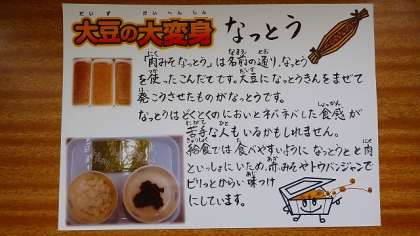 大豆の大変身 なっとう
だいず だいへんしん
「肉みそなっとう」は名前の通り、なっとう
を使ったこんだてです。大豆になっとうきんをまぜて
発こうさせたものがなっとうです。
なっとうはどくとくのにおいとネバネバした食感が
苦手な人もいるかもしれません。
給食では食べやすいようになっとうと肉
といっしょにいため、赤みそやトウバンジャンで
ピリッとからい味つけ
にしています。